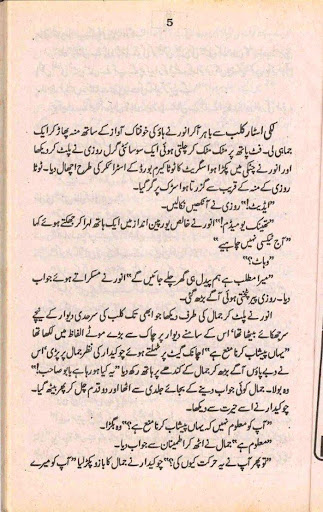 5
لکی اسٹار کلب سے باہر آکر انور نے ہاؤ کی خوفناک آواز کے ساتھ منہ پھاڑ کر ایک
جماہی لی۔ فٹ پاتھ پر مٹک مٹک کر چلتی ہوئی ایک سوسائٹی گرل روزی نے پلٹ کر دیکھا
اور انور نے چٹکی میں پکڑا ہوا سگریٹ کا ٹوٹا کیرم بورڈ کے اسٹرائکر کی طرح اچھال دیا۔ ٹوٹا
روزی کے منہ کے قریب سے گزرتا ہوا سڑک پر گر گیا۔
"ایڈیٹ!" روزی نے آنکھیں نکالیں۔
"تھینک یو میڈم!" انور نے خالص یورپین انداز میں ایک ہاتھ لہرا کر جھکتے ہوئے کہا
"آج ٹیکسی نہیں چاہیے"
"وہاٹ؟"
"میرا مطلب ہے ہم پیدل ہی گھر چلے جائیں گے" انور نے مسکراتے ہوئے جواب
دیا۔ روزی پیر پٹختی ہوئی آگے بڑھ گئی۔
انور نے پلٹ کر جمال کی طرف دیکھا جو ابھی تک کلب کی سرحدی دیوار کے نیچے
سر جھکائے بیٹھا تھا' اس کے سامنے دیوار پر چاک سے بڑے موٹے الفاظ میں لکھا تھا
"یہاں پیشاب کرنا منع ہے" اچانک گیٹ پر ٹہلتے ہوئے چوکیدار کی نظر جمال پر پڑی' اس
نے دبے پاؤں آگے بڑھ کر جمال کے کندھے پر ہاتھ رکھ دیا "یہ کیا ہو رہا ہے بابو صاحب!"
وہ بولا۔ جمال کوئی جواب دینے کے بجائے جلدی سے اٹھا اور دو قدم چل کر پھر بیٹھ گیا۔
چوکیدار نے اسے حیرت سے دیکھا۔
"آپ کو معلوم نہیں کہ یہاں پیشاب کرنا منع ہے؟" وہ بگڑا۔
"معلوم ہے" جمال نے اٹھ کر اطمینان سے جواب دیا۔
"تو پھر آپ نے یہ حرکت کیوں کی؟" چوکیدار نے جمال کا بازو پکڑ لیا "آپ کو میرے